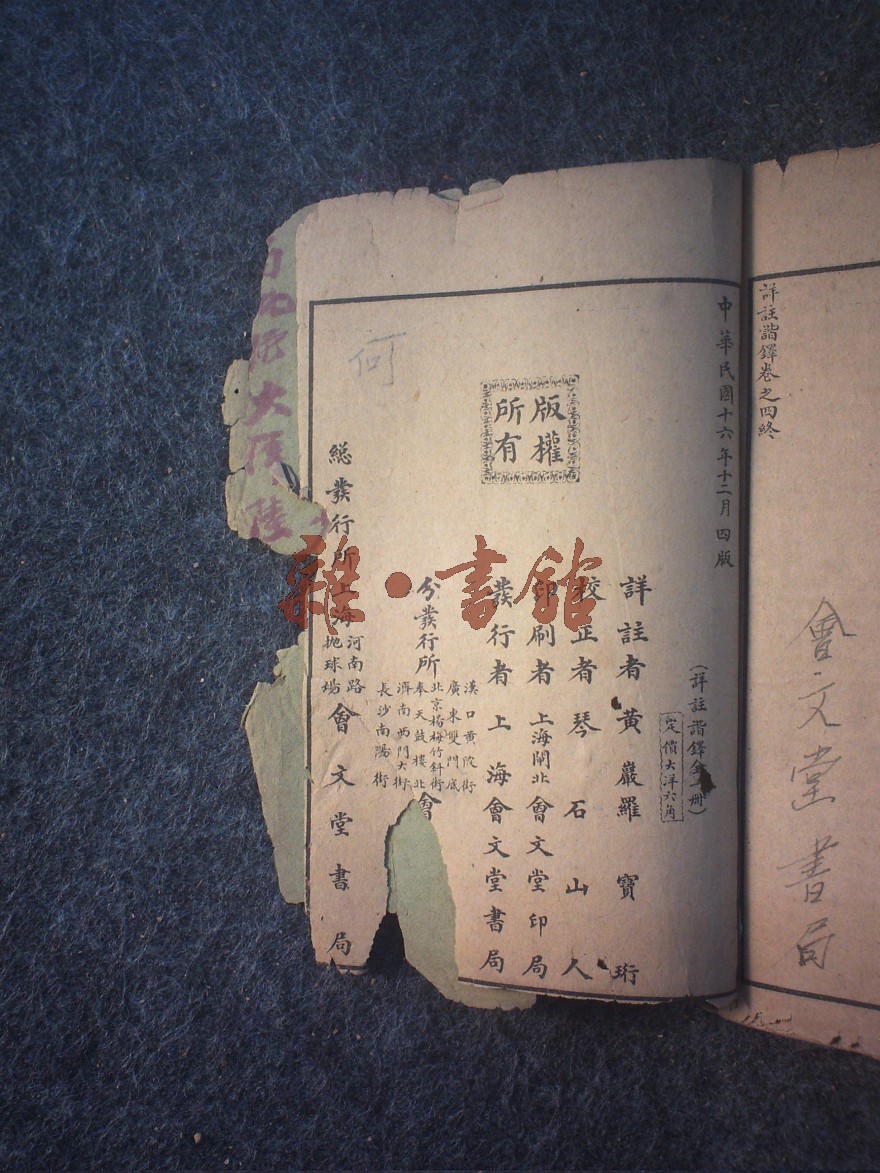 詳註諧鐸卷之四終
會文堂書局
中華民國十六年十二月四版
(詳註諧鐸全 冊)
定價大洋六角
詳註者黃巖羅寶珩
校正者琴石山人
印刷者上海閘北會文堂印局
發行者上海會文堂書局
版權
所有
分發行所
漢口黃陂街
廣東雙門底
北京楊梅竹斜街
奉天鼓樓北
濟南西門大街
長沙南陽街
會
總發行所上海河南路
拋球場
會文堂書局
何
大
陸
雜·書館